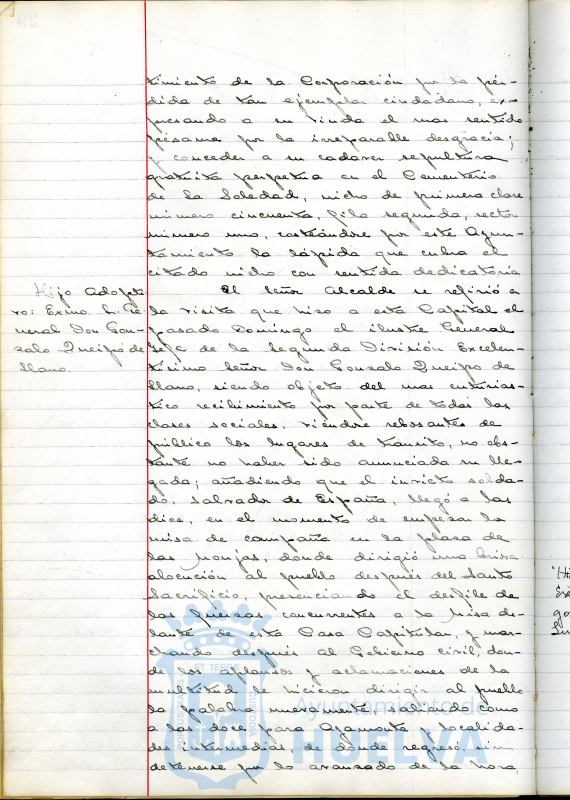 timiento de la Corporación por la pér-
dida de tan ejemplar ciudadano, ex-
presando a su viuda el mas sentido
pésame por la irreparable desgracia;
y conceder a su cadaver sepultura
gratuita perpetua en el Cementerio
de la Soledad, nicho de primera clase
número cincuenta, fila segunda, sector
número uno, costeándose por este Ayun-
tamiento la lápida que cubra el
citado nicho con sentida dedicatoria
Hijo Adopti
vo: Exmo. Sr. Ge
neral Don Gon-
zalo Queipo de
Llano.
El Señor Alcalde se refirió a
la visita que hizo a esta Capital el
pasado Domingo el ilustre General
Jefe de la Segunda División Excelen-
tísimo Señor Don Gonzalo Queipo de
Llano, siendo objeto del mas entusias-
tico recibimiento por parte de todas las
clases sociales, viendose rebosantes de
público los lugares de tránsito, no obs-
tante no haber sido anunciada su lle-
gada; añadiendo que el invicto solda-
do, salvador de España, llegó a las
diez, en el momento de empezar la
misa de campaña en la plaza de
las Monjas, donde dirigió una
alocución al pueblo después del Santo
Sacrificio, presenciando el desfile de
las fuerzas concurrentes a la Misa de-
lante de esta Casa Capitular, y mar-
chando después al Gobierno civil, don-
de los aplausos y aclamaciones de la
multitud le hicieron dirigir al pueblo
la palabra nuevamente, saliendo como
a las doce para Ayamonte y localida-
des intermedias, de donde regresó sin
detenerse por lo avanzado de la hora,
Ayuntamiento de
HUELVA